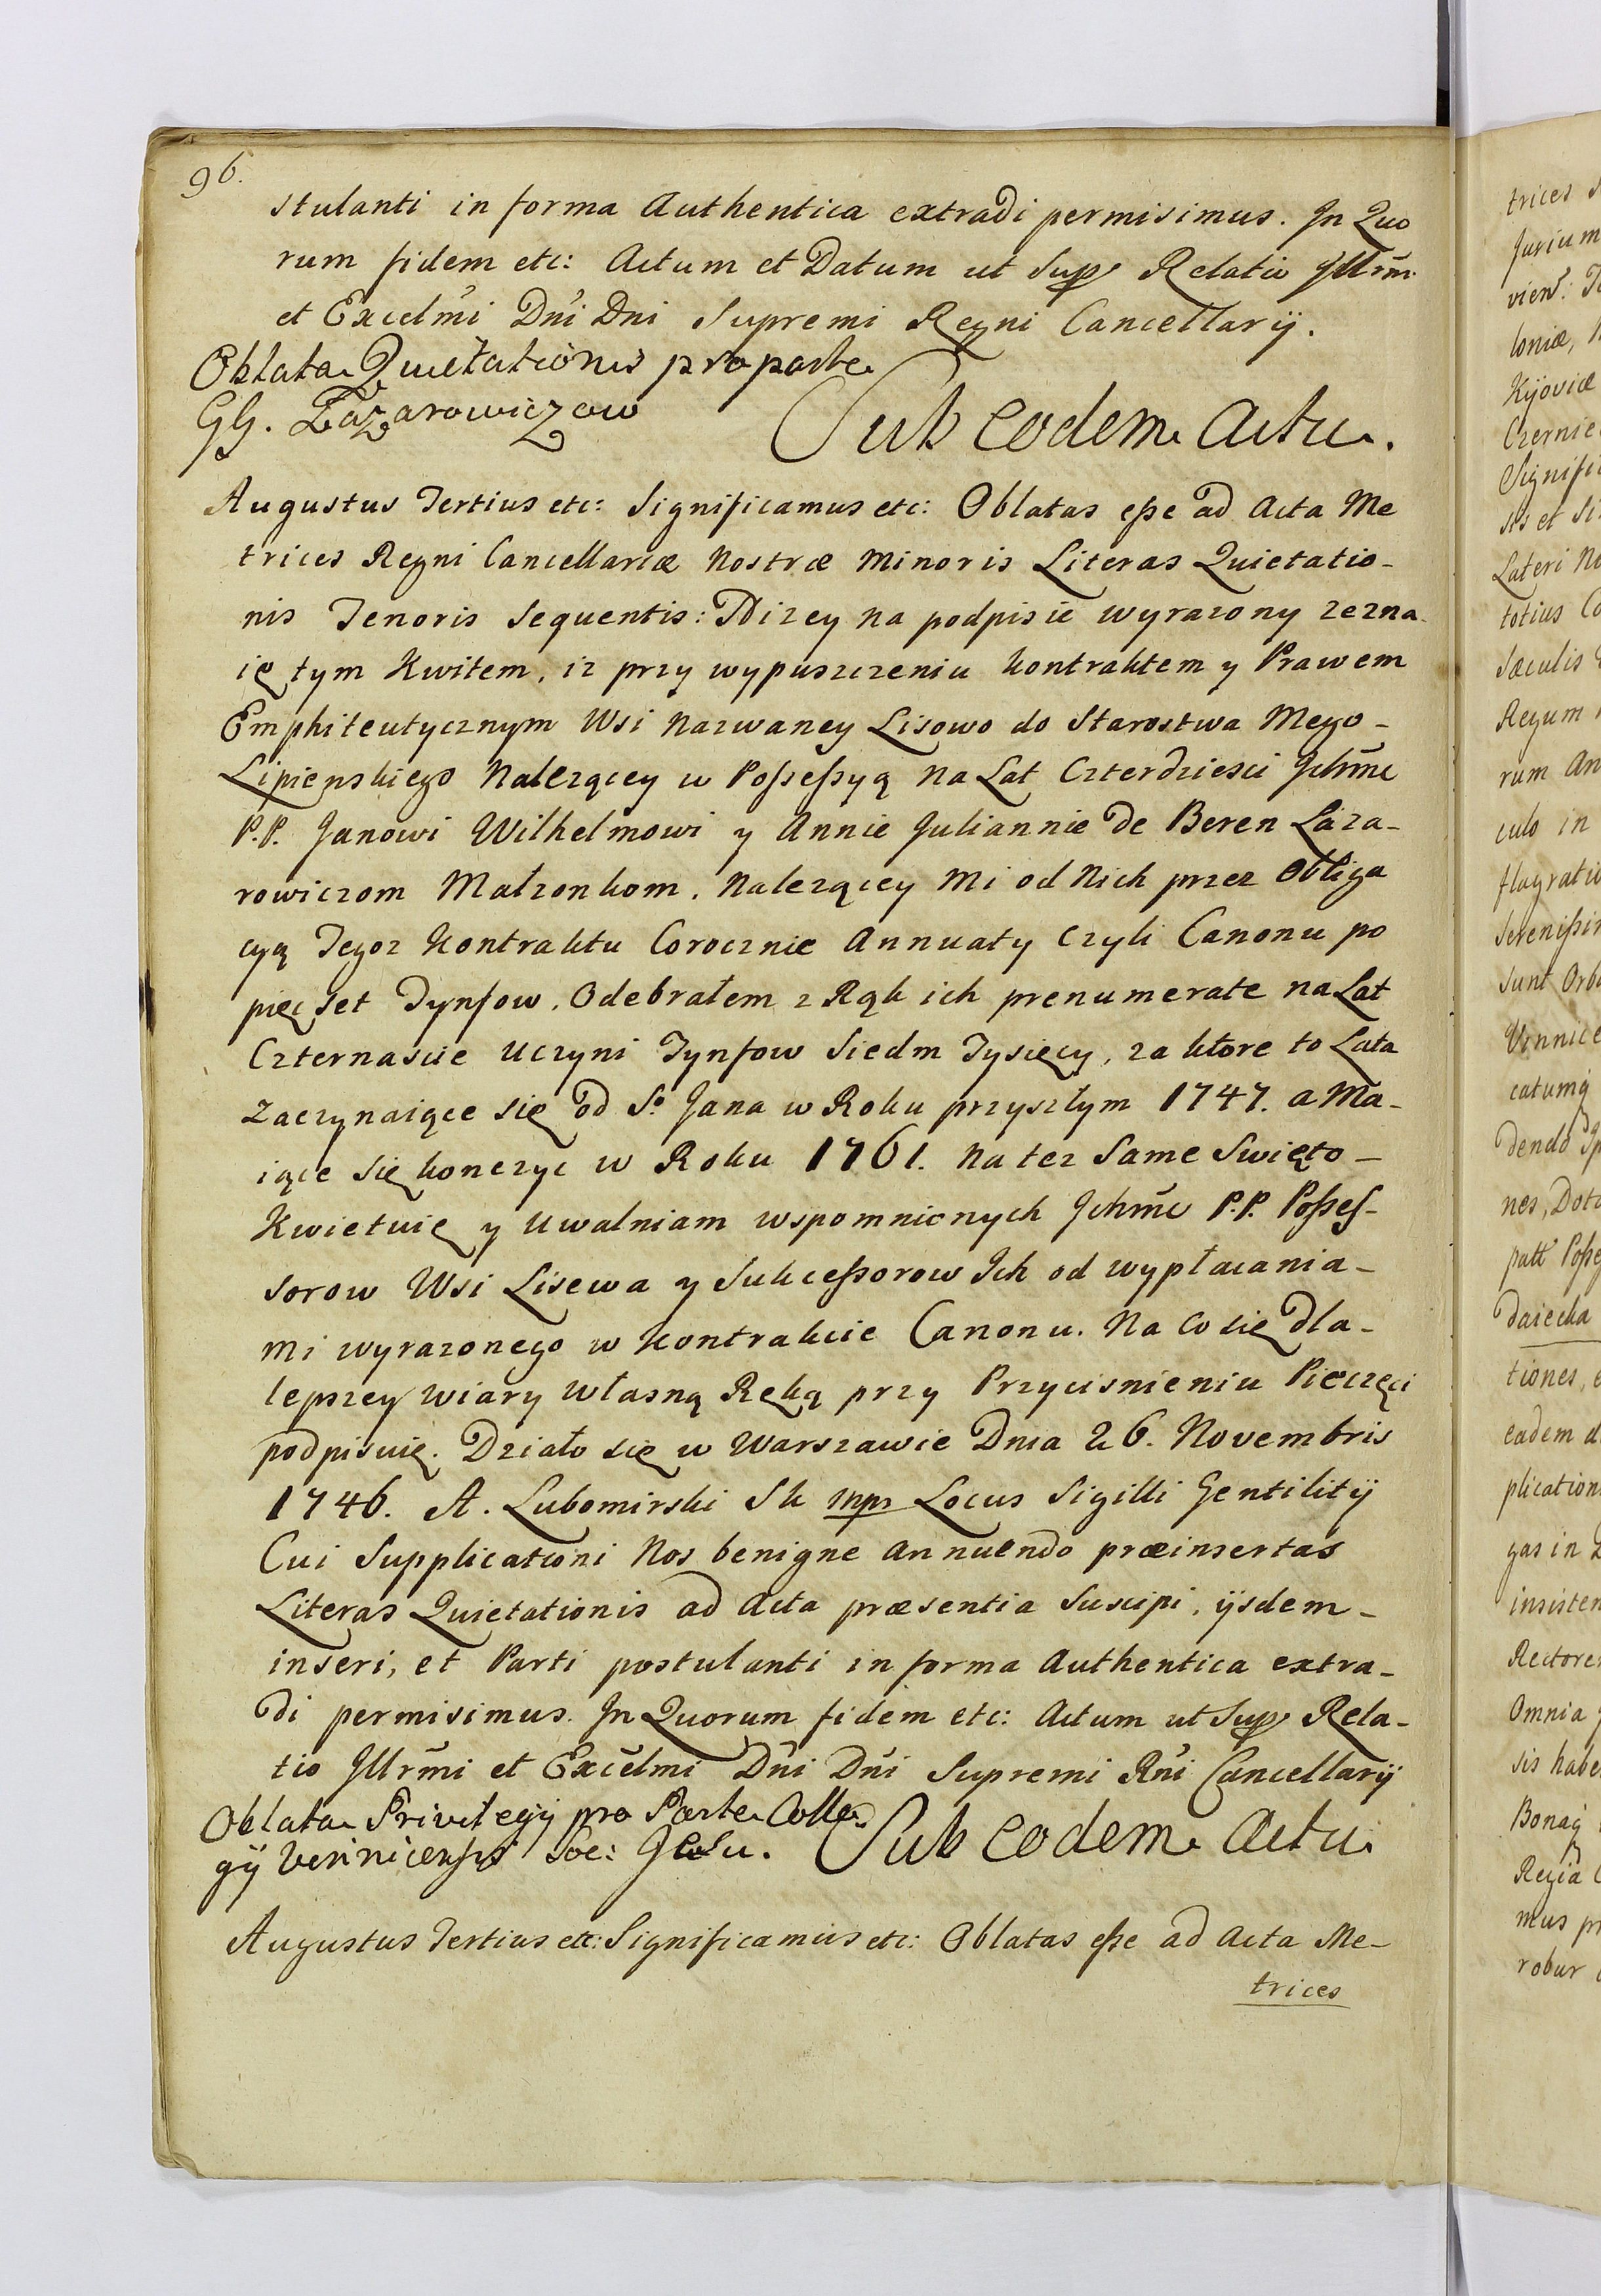 96.
stulanti in forma Authentica extradi permisimus. In Quo
rum fidem etc: Actum et Datum ut Supp Relatio Jllrm̃i
et Excelm̃i Dñi Dñi Supremi Regni Cancellarÿ.
Oblata Quietationis pro parte
GG. Łazarowiczow
Sub eodem Actu.
Augustus Tertius etc: Significamus etc: Oblatas eße ad Acta Me
trices Regni Cancellariæ Nostræ Minoris Literas Quietatio-
nis Tenoris Sequentis: Nizey na podpisie wyrazony zezna-
ię tym Kwitem, iz przy wypuszczeniu kontraktem y Prawem
Emphiteutycznym Wsi Nazwaney Lisowo do Starostwa Mego-
Lipienskiego Nalezącey w Poßeßyą na Lat Czterdziesci Jchm̃c
P.P. Janowi Wilhelmowi y Annie Juliannie De Beren Laza-
rowiczom Małzonkom, Nalezącey Mi od Nich przez Obliga
cyą Tegoz Kontraktu Corocznie Annuaty Czyli Canonu po
pięc set Tynfow, Odebrałem z Rąk ich prenumerate na Lat
Czternascie Uczyni Tynfow Siedm Tysięcy, za ktore to Lata
Zaczynaiące się od So Jana w Roku przyszłym 1747. a Ma-
iące się konczyc w Roku 1761. na tez Same Swięto-
Kwietuię y Uwalniam wspomnionych Jchm̃c P.P. Poßeß-
sorow Wsi Lisewa y Sukceßorow Jch od wypłacania-
mi wyrazonego w Kontrakcie Canonu. Na Co się Dla-
lepszey wiary własną Ręką przy Przycisnieniu Pieczęci
podpisuię. Działo się w Warszawie Dnia 26. Novembris
1746. A. Lubomirski Sk mpr Locus Sigilli Gentilitÿ
Cui Supplicationi Nos benigne Annuendo præinsertas
Literas Quietationis ad Acta præsentia Suscipi, ÿsdem-
inseri, et Parti postulanti in forma Authentica extra-
di permisimus. In Quorum fidem etc: Actum ut Supp Rela-
tio Jllrm̃i et Excelm̃i Dñi Dñi Supremi Rñi Cancellarÿ
Oblata Privilegÿ pro Parte Colle
gÿ Vinnicensis Soc: Jesu.
Sub eodem Actu
Augustus Tertius etc: Significamus etc: Oblatas eße ad Acta Me-
trices
trices
Jurium
loniæ,
Kijoviæ
Lateri
totius
Sæculis
Regum
rum An
culo in
sunt
Vinnice
catumq
dendo
nes,
tiones,
eadem
plication
gas in
insisten
Rectore
Omnia
sis habe
Bonaq
Regia
mus pr
robur